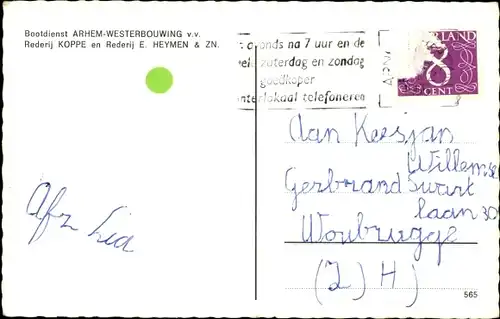 Bootdienst ARHEM-WESTERBOUWING v.v.
Rederij KOPPE en Rederij E. HEYMEN & ZN.
avonds na 7 uur en de
zaterdag en zondag
goedkoper
interlokaal telefoneren
8
CENT
Aan Keesjan
Willemse
Gerbrand Swart
laan 30
Woubrugge
(Z) H)
Afz Lia
565